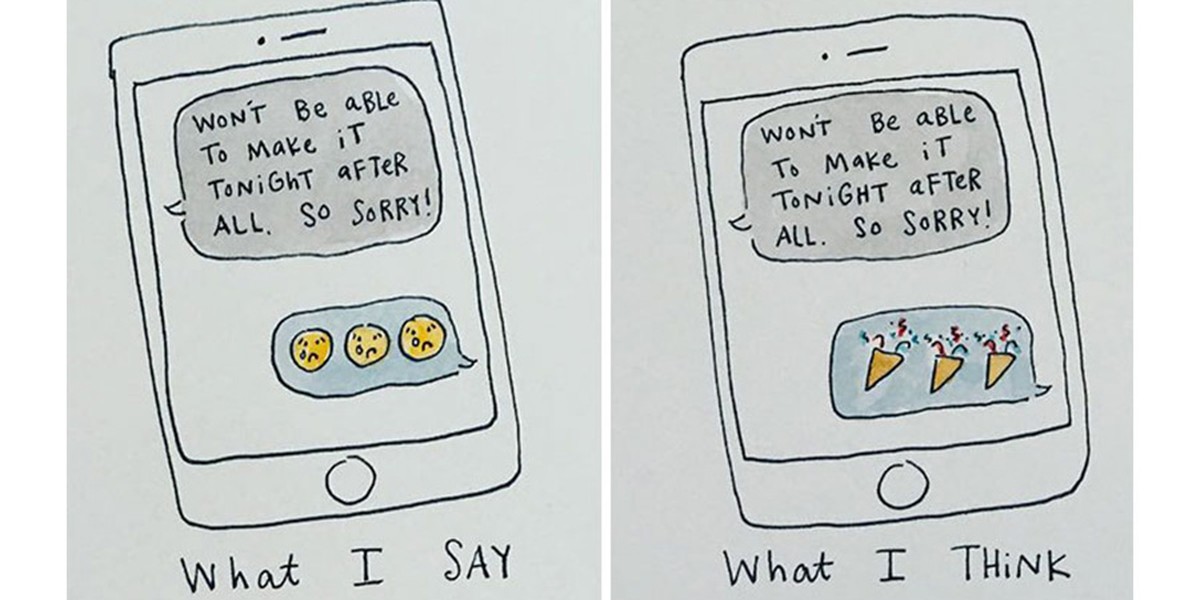 WON'T BE aBLe
To MaKe iT
ToNiGhT aFTeR
ALL. So SoRRY!
What I SAY
WON'T Be aBLe
To MaKe iT
ToNiGHT aFTeR
ALL. So SoRRY!
What I THiNK